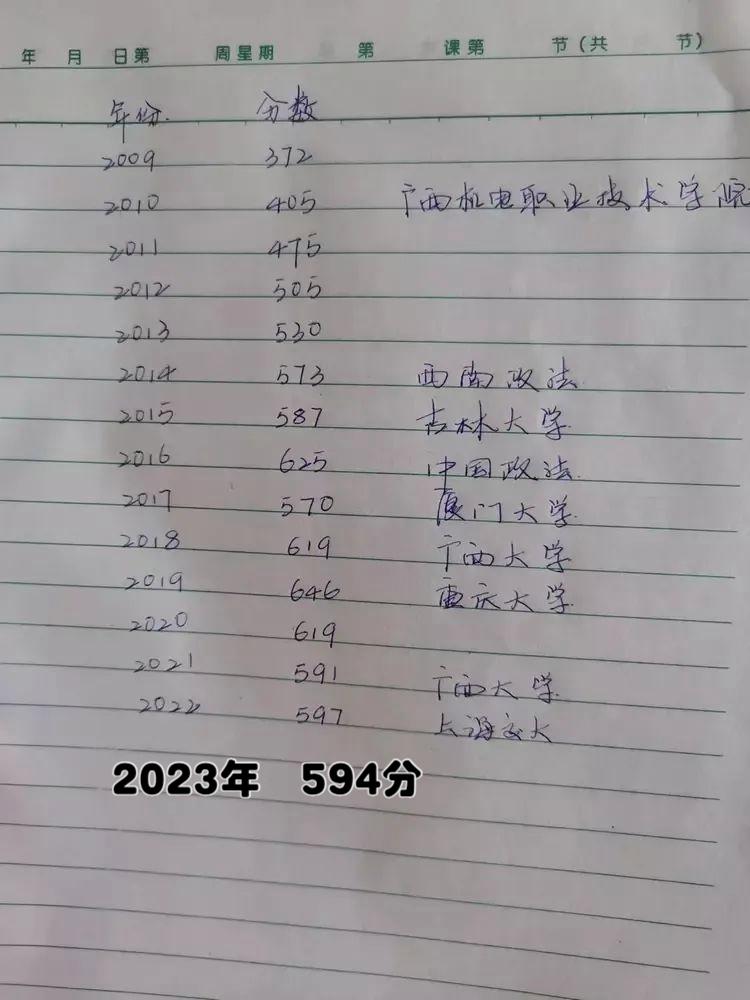 年 月 日第 周星期 第 课第 节(共 节)
年份 分数
2009 372
2010 405 广西机电职业技术学院
2011 475
2012 505
2013 530
2014 573 西南政法
2015 587 吉林大学
2016 625 中国政法
2017 570 厦门大学
2018 619 广西大学
2019 646 重庆大学
2020 619
2021 591 广西大学
2022 597 上海交大
2023年 594分